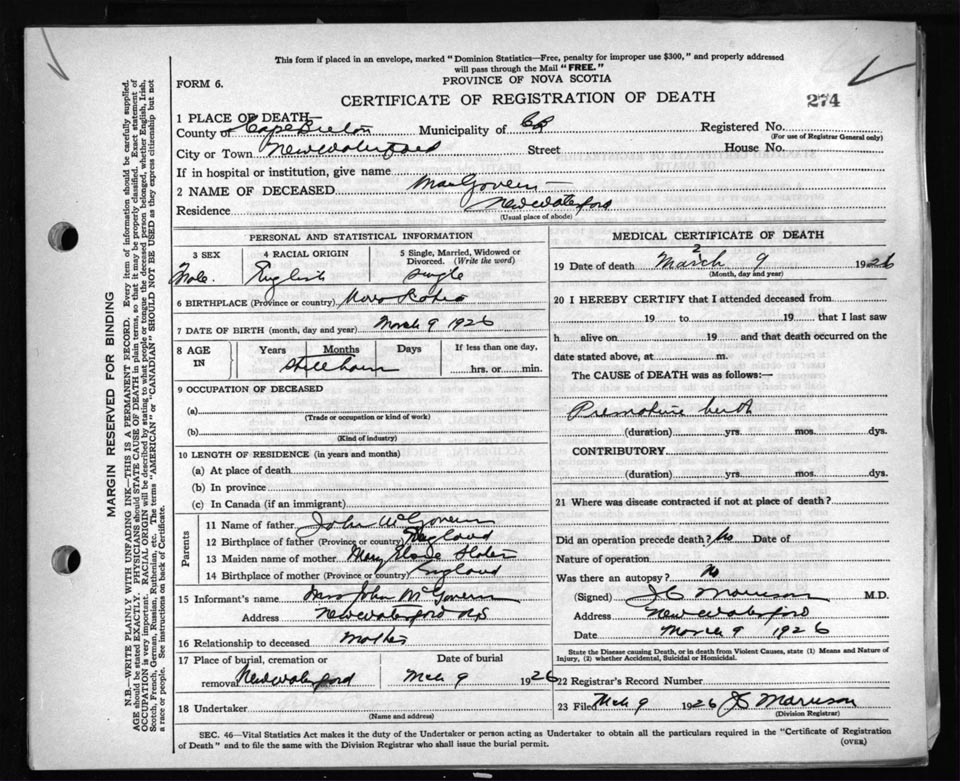 This form if placed in an envelope, marked "Dominion Statistics—Free, penalty for improper use $300," and properly addressed
will pass through the Mail "FREE."
FORM 6.
PROVINCE OF NOVA SCOTIA
CERTIFICATE OF REGISTRATION OF DEATH
274
1 PLACE OF DEATH
County of Cape Breton Municipality of CB Registered No.
(For use of Registrar General only)
City or Town New Waterford Street House No.
If in hospital or institution, give name
2 NAME OF DECEASED McGovern
Residence New Waterford
(Usual place of abode)
PERSONAL AND STATISTICAL INFORMATION
3 SEX
Male
4 RACIAL ORIGIN
English
5 Single, Married, Widowed or
Divorced. (Write the word)
Single
6 BIRTHPLACE (Province or country) Nova Scotia
7 DATE OF BIRTH (month, day and year) March 9 1926
8 AGE
IN
Years Months Days
Stillborn
If less than one day,
hrs. or min.
9 OCCUPATION OF DECEASED
(a)
(Trade or occupation or kind of work)
(b)
(Kind of industry)
10 LENGTH OF RESIDENCE (in years and months)
(a) At place of death
(b) In province
(c) In Canada (if an immigrant)
Parents
11 Name of father John McGovern
12 Birthplace of father (Province or country) England
13 Maiden name of mother Mary
14 Birthplace of mother (Province or country) England
15 Informant's name Mrs John McGovern
Address New Waterford NS
16 Relationship to deceased Mother
17 Place of burial, cremation or
removal New Waterford
Date of burial
Mch 9 1926
18 Undertaker
(Name and address)
MEDICAL CERTIFICATE OF DEATH
2
19 Date of death March 9 1926
(Month, day and year)
20 I HEREBY CERTIFY that I attended deceased from
19 to 19 that I last saw
h alive on 19 and that death occurred on the
date stated above, at m.
The CAUSE of DEATH was as follows:—
Premature birth
(duration) yrs. mos. dys.
CONTRIBUTORY
(duration) yrs. mos. dys.
21 Where was disease contracted if not at place of death?
Did an operation precede death? No Date of
Nature of operation
Was there an autopsy? No
(Signed) J C Morrison M.D.
Address New Waterford
Date March 9 1926
State the Disease causing Death, or in death from Violent Causes, state (1) Means and Nature of
Injury, (2) whether Accidental, Suicidal or Homicidal.
22 Registrar's Record Number
23 Filed Mch 9 1926 JC Morrison
(Division Registrar)
SEC. 46—Vital Statistics Act makes it the duty of the Undertaker or person acting as Undertaker to obtain all the particulars required in the "Certificate of Registration
of Death" and to file the same with the Division Registrar who shall issue the burial permit.
(OVER)
MARGIN RESERVED FOR BINDING
N.B.—WRITE PLAINLY WITH UNFADING INK—THIS IS A PERMANENT RECORD. Every item of information should be carefully supplied.
AGE should be stated EXACTLY. PHYSICIANS should STATE CAUSE OF DEATH in plain terms, so that it may be properly classified. Exact statement of
OCCUPATION is very important. RACIAL ORIGIN will be described by stating to what people or tongue the deceased person belonged, whether English, Irish,
Scotch, French, German, Russian, Ruthenian, etc. The terms "AMERICAN" or "CANADIAN" SHOULD NOT BE USED as they express citizenship but not
a race or people. See instructions on back of Certificate.